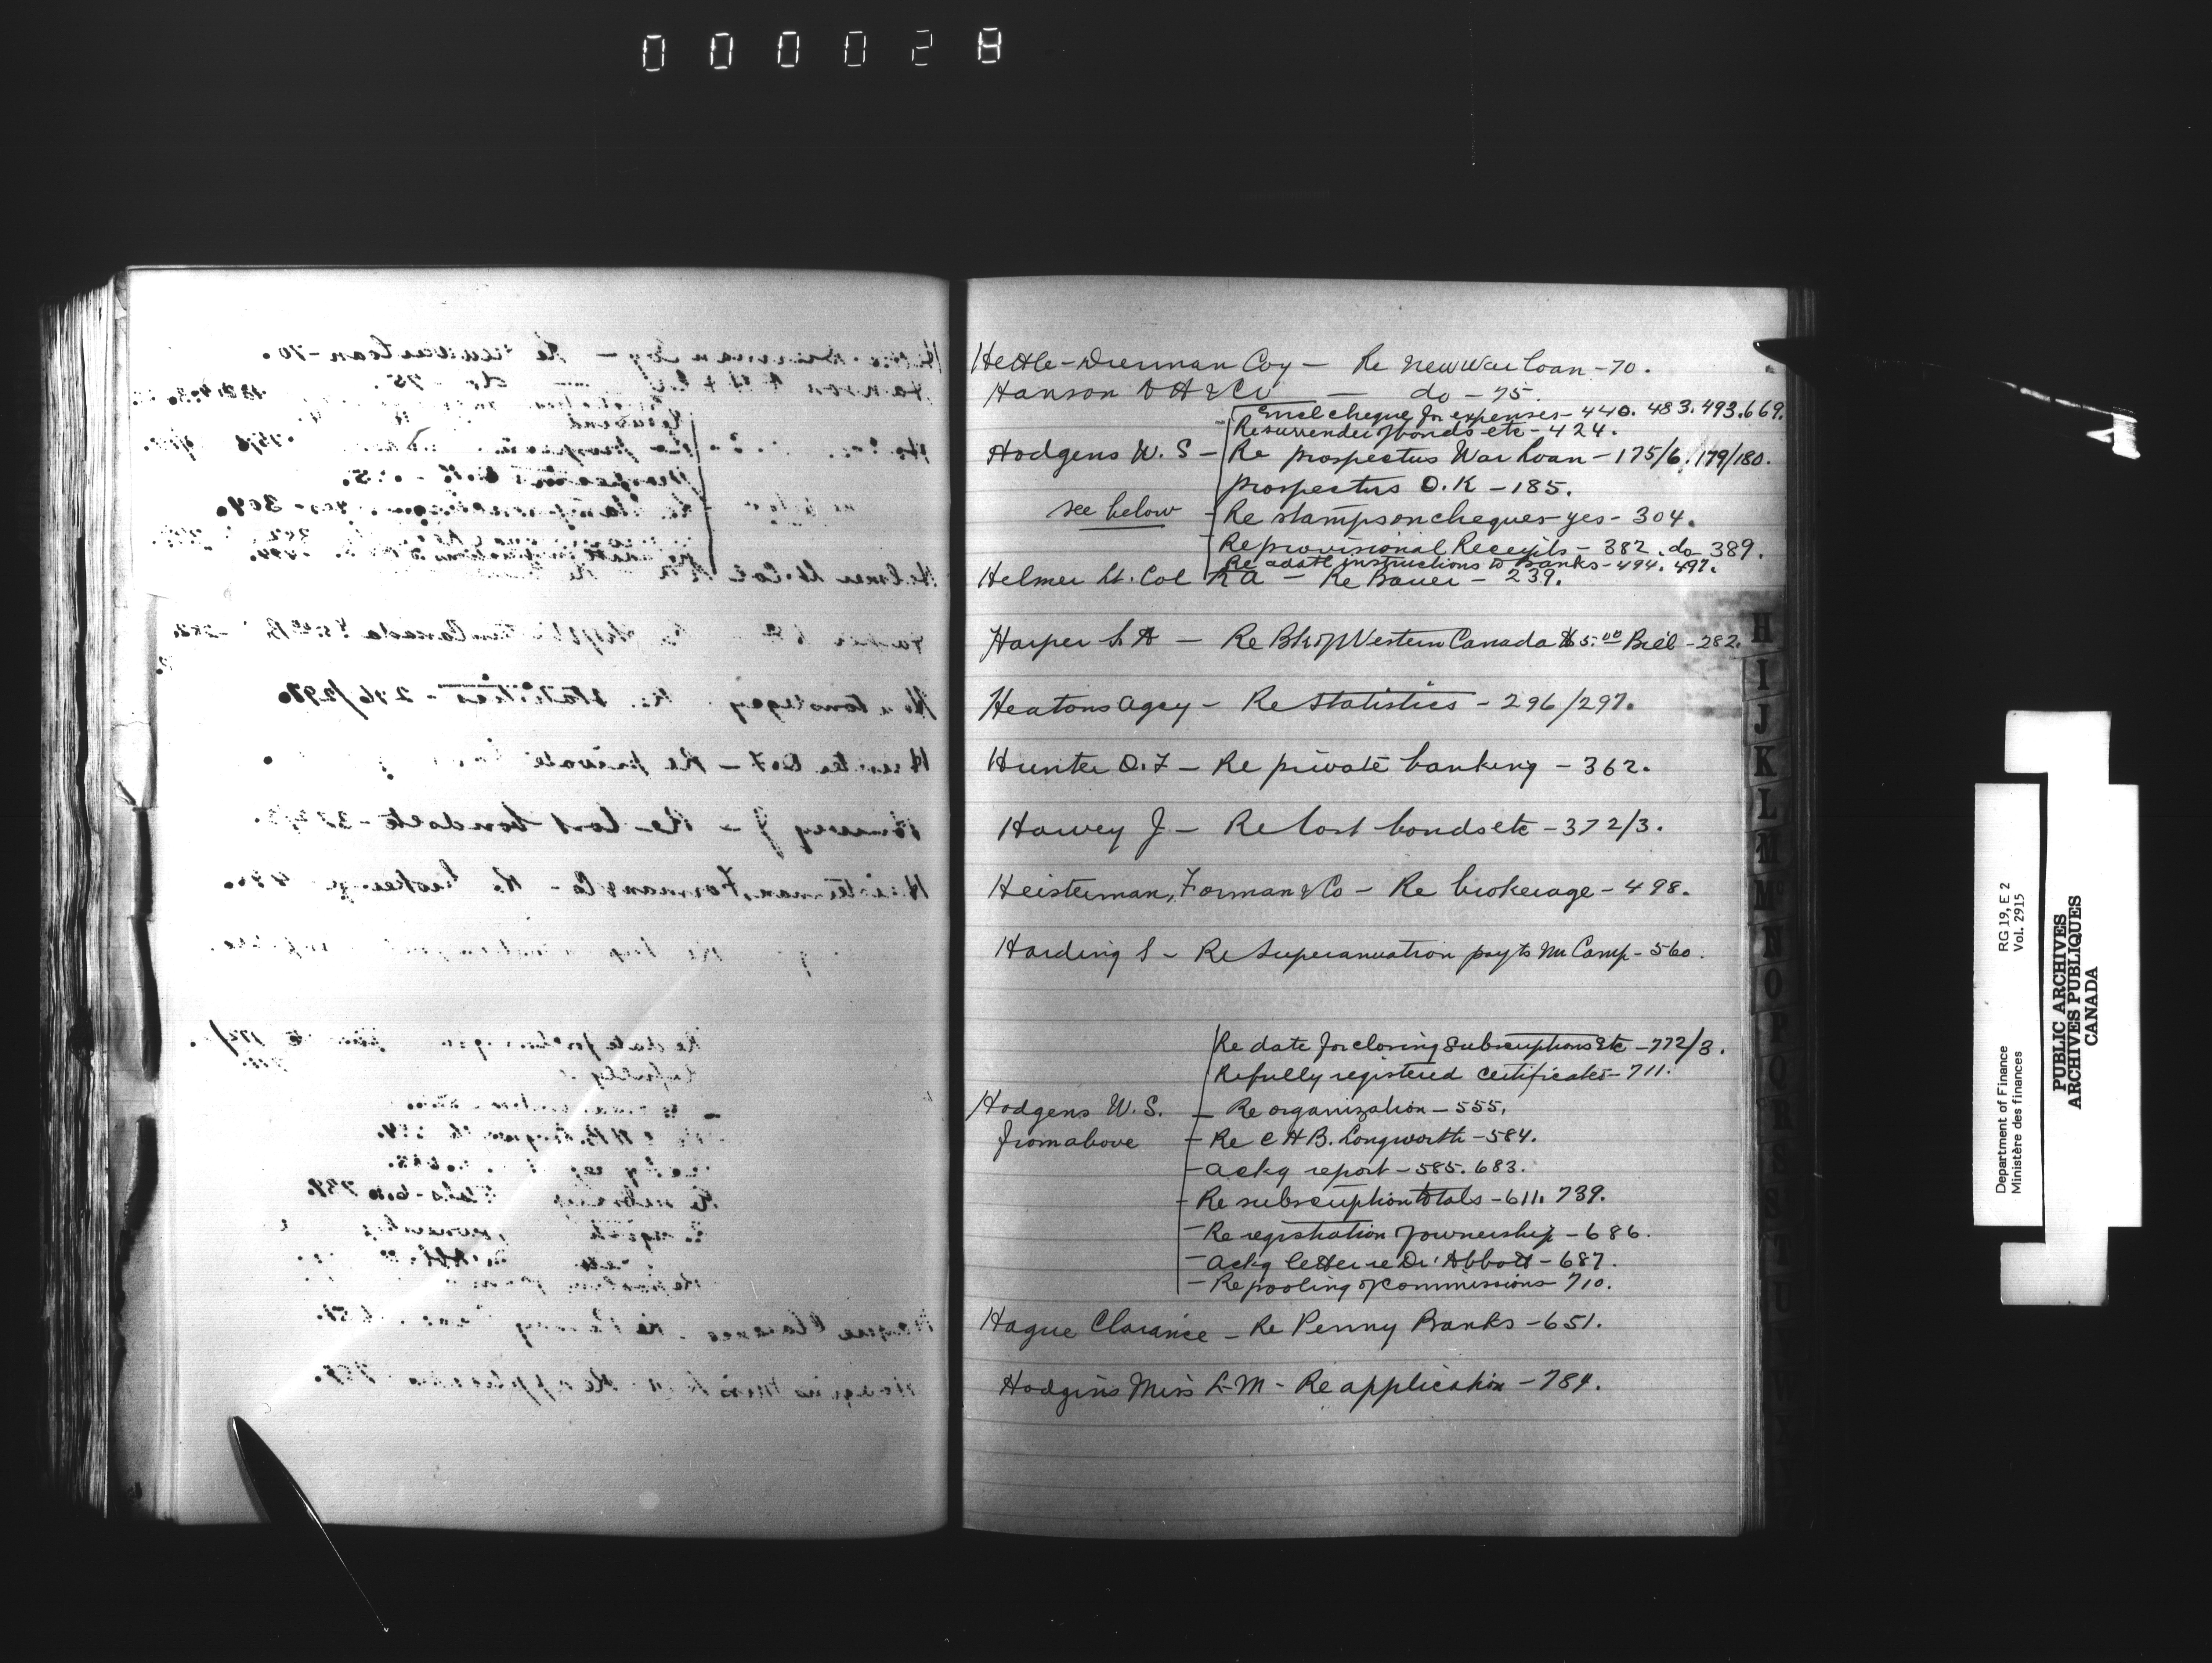 000028
Hettle-Drennan Coy - Re New War Loan - 70.
Hanson A H & Co - do - 75.
Encl cheque for expenses - 440. 483. 493. 669.
Re surrender of bonds etc - 424.
Hodgens W. S - Re prospectus War Loan - 175/6. 179/180.
prospectus O.K - 185.
see below - Re stamps on cheques - yes - 304.
- Re provisional Receipts - 382. do 389.
Re instructions to Banks - 494. 497.
Helmer Lt. Col R A - Re Bauer - 239.
Harper L A - Re Bk of Western Canada $5.00 Bill - 282.
Heatons Agcy - Re Statistics - 296/297.
Hunter O. F - Re private banking - 362.
Harvey J - Re lost bonds etc - 372/3.
Heisterman, Forman & Co - Re brokerage - 498.
Harding S - Re Superanuation pay to Mr Camp - 560.
Re date for closing subscriptions etc - 772/3.
Re fully registered certificates - 711.
Hodgens W. S. - Re organization - 555.
from above - Re C H B. Longworth - 584.
- ackg report - 585. 683.
- Re subscription totals - 611. 739.
- Re registration of ownership - 686.
- ackg letter re Dr. Abbott - 687.
- Re pooling of commissions 710.
Hague Clarance - Re Penny Banks - 651.
Hodgins Miss L M - Re application - 784.
H
I
J
K
L
M
Mc
N
O
P
Department of Finance
Ministère des finances
RG 19, E 2
Vol. 2915
PUBLIC ARCHIVES
ARCHIVES PUBLIQUES
CANADA